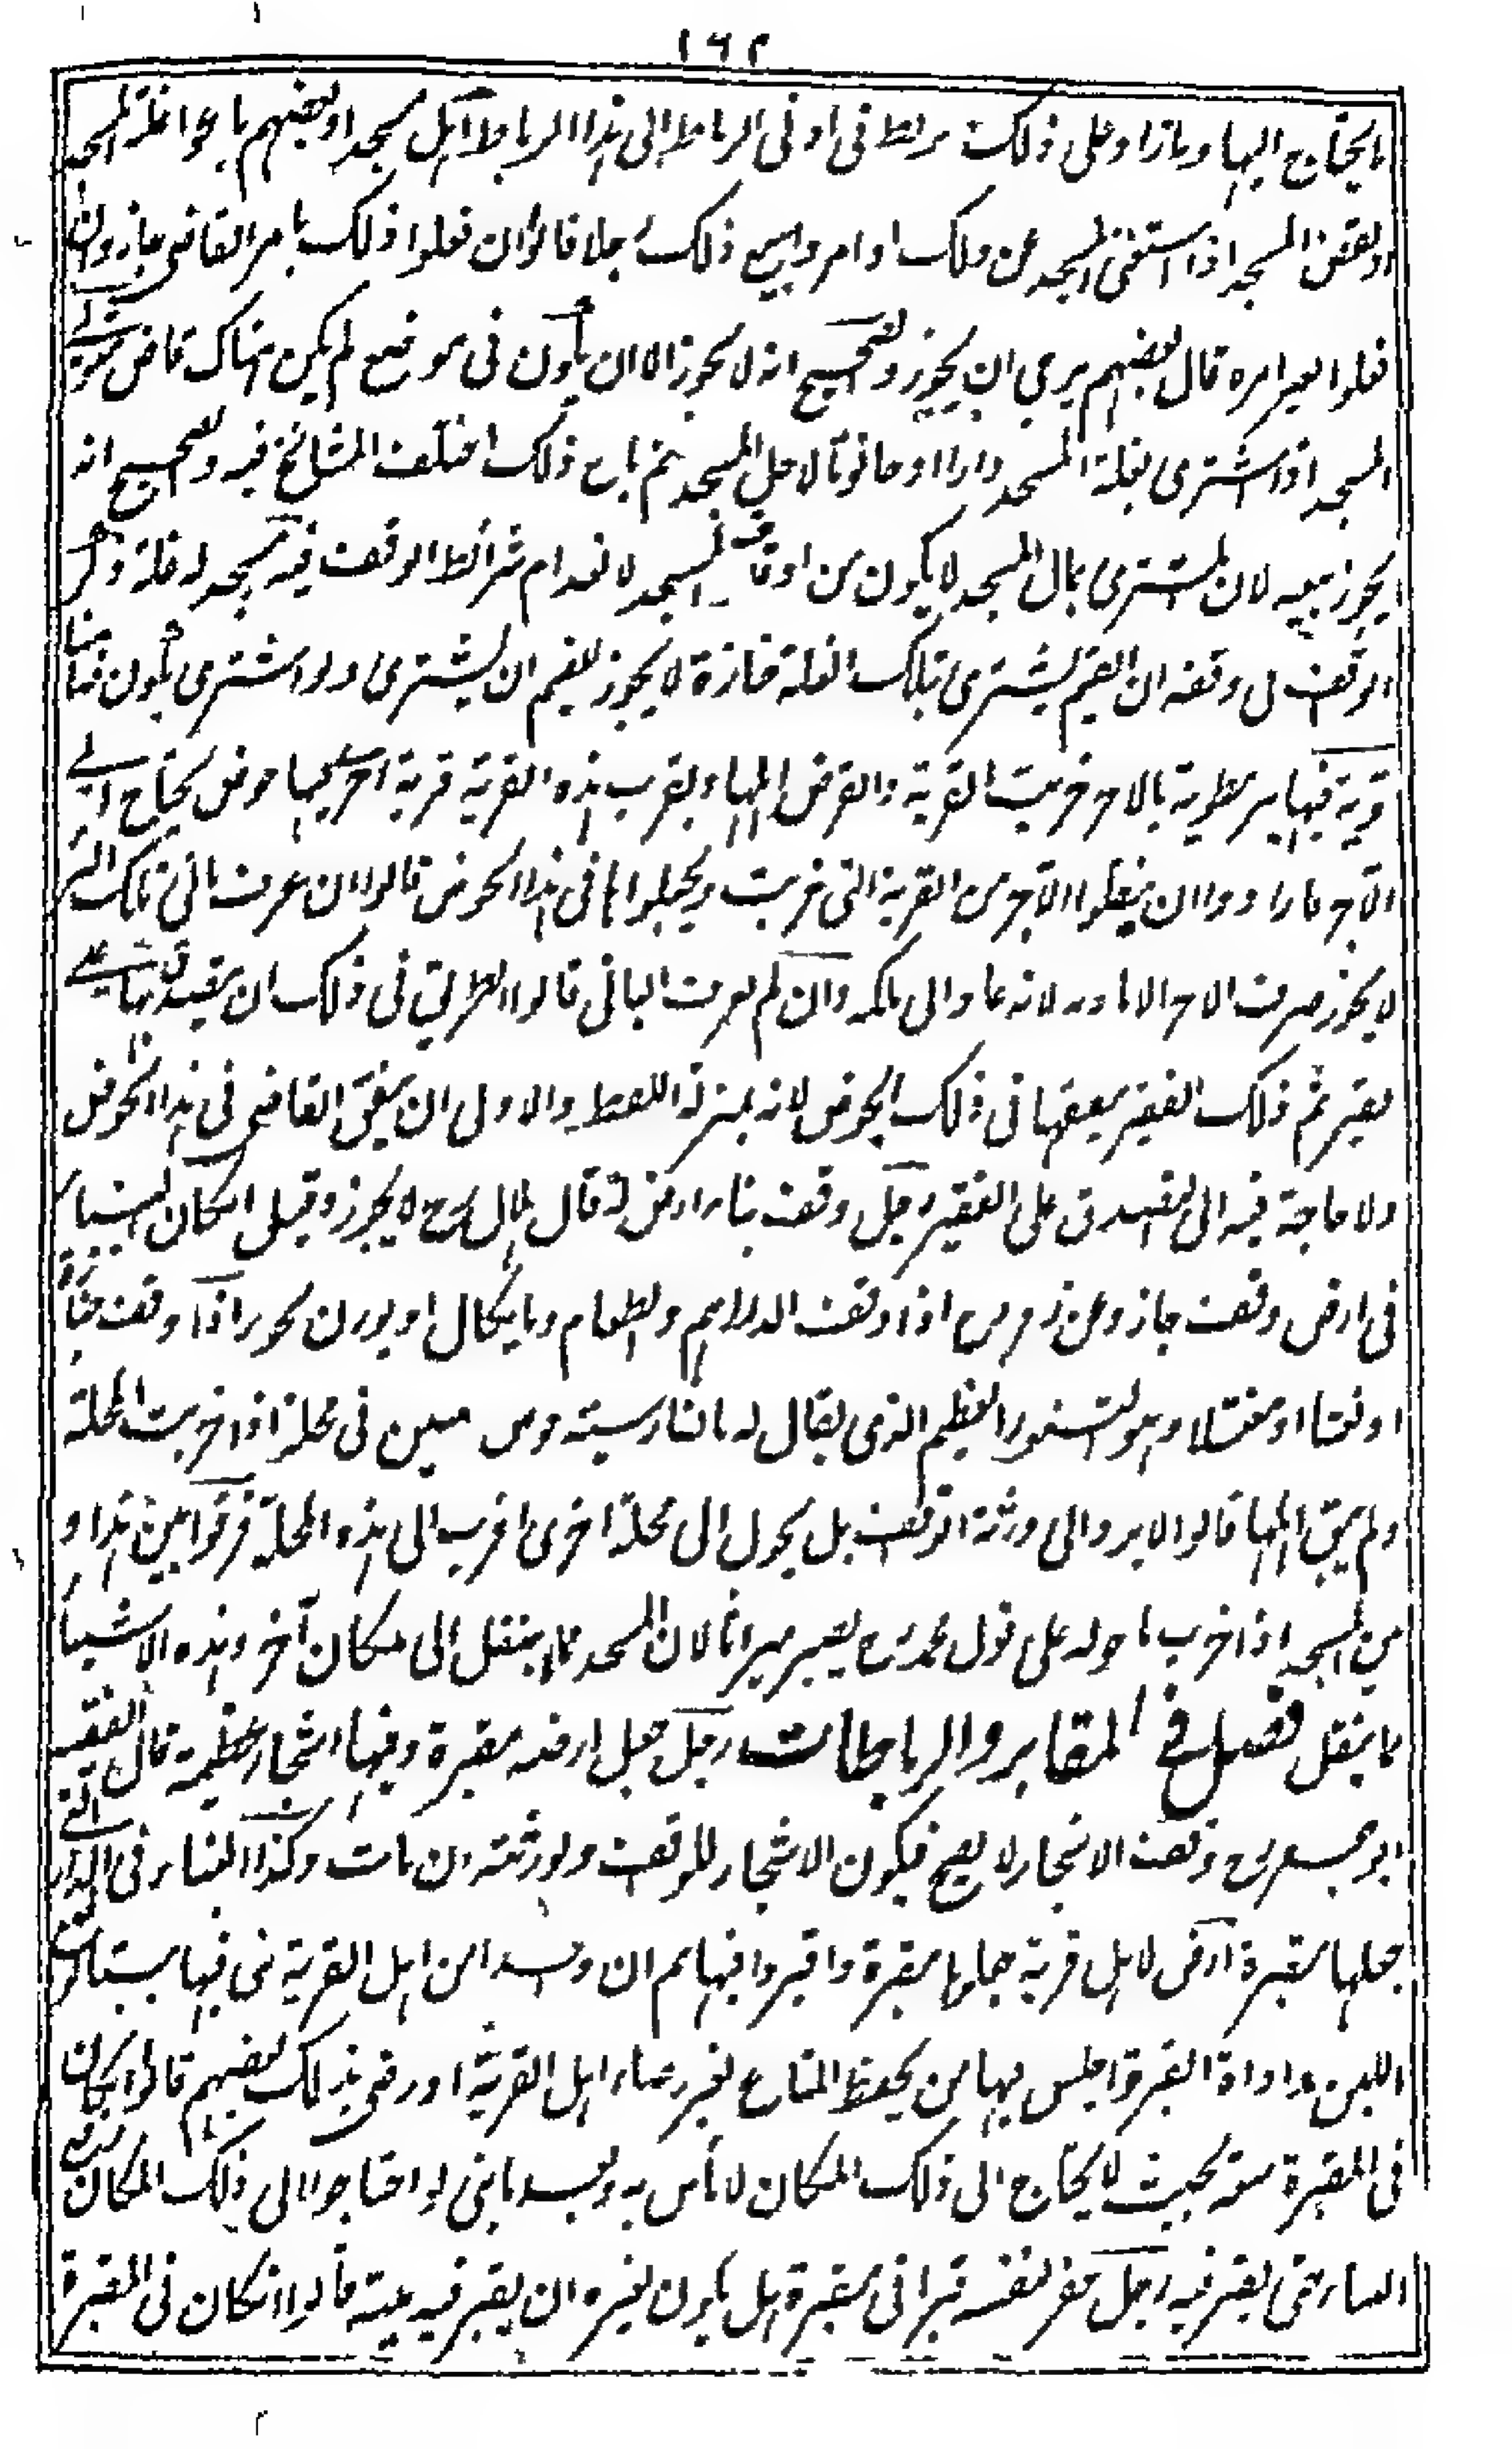 ١٦٢
ما يحتاج اليها وما زاد على ذلك يربط فى ادنى الرباط الى هذا الرباط اهل مسجد او بعضهم باعوا غلة المسجد
او نقض المسجد اذا استغنى المسجد عن ذلك او امروا ببيع ذلك رجلا قالوا ان فعلوا ذلك بامر القاضى جاز وان
فعلوا بغير امره قال بعضهم يرجى ان يجوز والصحيح انه لا يجوز الا ان يكون فى موضع لم يكن هناك قاض متولى
المسجد اذا اشترى بغلة المسجد دارا او حانوتا لاجل المسجد ثم باع ذلك اختلف المشائخ فيه والصحيح انه
يجوز بيعه لان المشترى بمال المسجد لا يكون من اوقاف المسجد لانعدام شرائط الوقف فيه مسجد له غلة وذكر
الواقف فى وقفه ان القيم يشترى بتلك الغلة جنازة لا يجوز للقيم ان يشترى ولو اشترى يكون ضامنا
قرية فيها بير مطوية بالآجر خربت القرية وانقرض اهلها وبقرب هذه القرية قرية اخرى فيها حوض يحتاج الى
الآجر فارادوا ان ينقلوا الآجر من القرية التى خربت ويجعلوها فى هذا الحوض قالوا ان عرف بانى تلك البير
لا يجوز صرف الآجر الا باذنه لانه عاد الى ملكه وان لم يعرف البانى قالوا الطريق فى ذلك ان يتصدق بها على
فقير ثم ذلك الفقير ينفقها فى ذلك الحوض لانه بمنزلة اللقطة والاولى ان ينفق القاضى فى هذا الحوض
ولا حاجة فيه الى التصدق على الفقير رجل وقف بناء ارض قال هلال رح لا يجوز وقيل ان كان البناء
فى ارض وقف جاز وعن زفر رح اذا وقف الدراهم والطعام وما يكال او يوزن يجوز اذا وقف جنازة
او نعشا او مغتسلا وهو التنور العظيم الذى يقال له بالفارسية حوض مسين فى محلة اذا خربت المحلة
ولم يبق اهلها قالوا لا يرد الى ورثة الواقف بل يحول الى محلة اخرى اقرب الى هذه المحلة فرقوا بين هذا و
بين المسجد اذا خرب ما حوله على قول محمد رح يصير ميراثا لان المسجد مما لا ينقل الى مكان آخر وهذه الاشياء
مما ينقل فصل فى المقابر والرباطات رجل جعل ارضه مقبرة وفيها اشجار عظيمة قال الفقيه
ابو جعفر رح وقف الاشجار لا يصح فيكون الاشجار للواقف ولورثته ان مات وكذا البناء فى الدار التى
جعلها مقبرة ارض لاهل قرية جعلوها مقبرة واقبروا فيها ثم ان واحدا من اهل القرية بنى فيها بيتا لوضع
اللبن واداة القبر واجلس فيها من يحفظ المتاع بغير رضاء اهل القرية او رضى بذلك بعضهم قالوا ان كان
فى المقبرة سعة بحيث لا يحتاج الى ذلك المكان لا بأس به وبعد ما بنى لو احتاجوا الى ذلك المكان يرفع
البناء حتى يقبر فيه رجل حفر لنفسه قبرا فى مقبرة هل يكون لغيره ان يقبر فيه ميته قالوا ان كان فى المقبرة